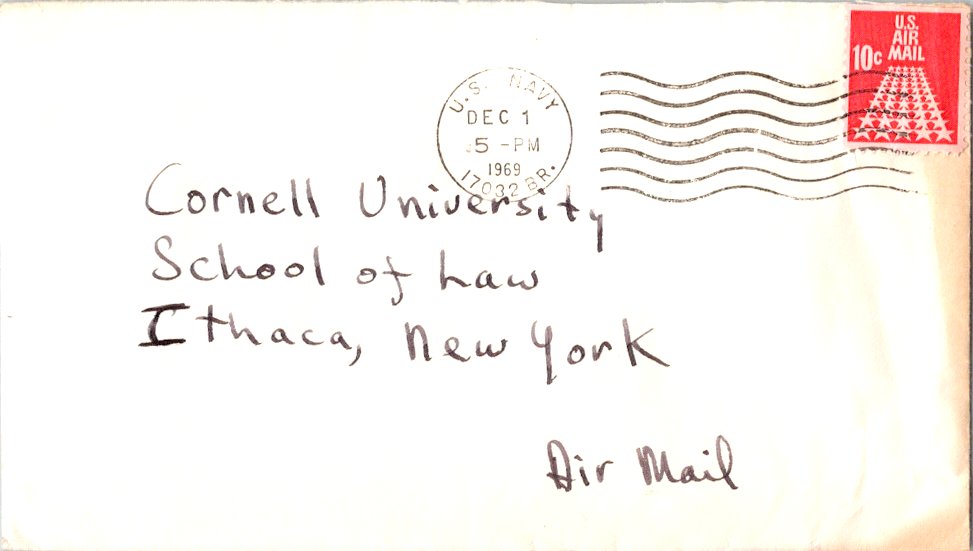 U.S.
AIR
MAIL
10c
U.S. NAVY
DEC 1
5 -PM
1969
17032 BR.
Cornell University
School of Law
Ithaca, New York
Air Mail